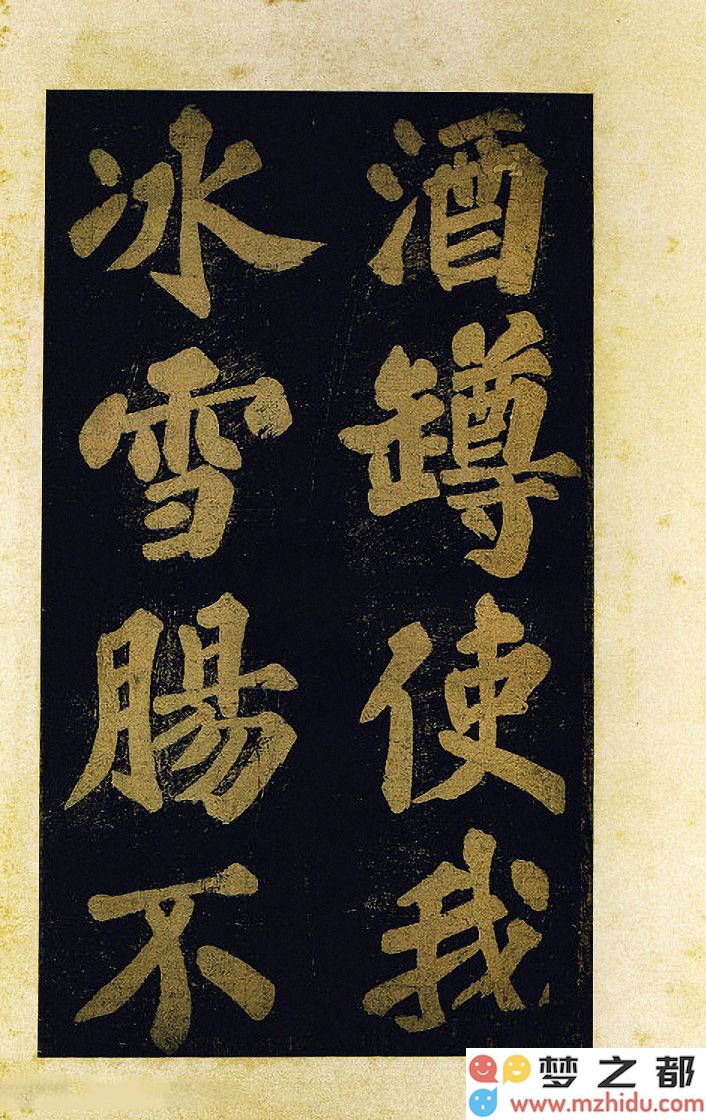 酒罇使我
冰雪腸不
梦之都
www.mzhidu.com